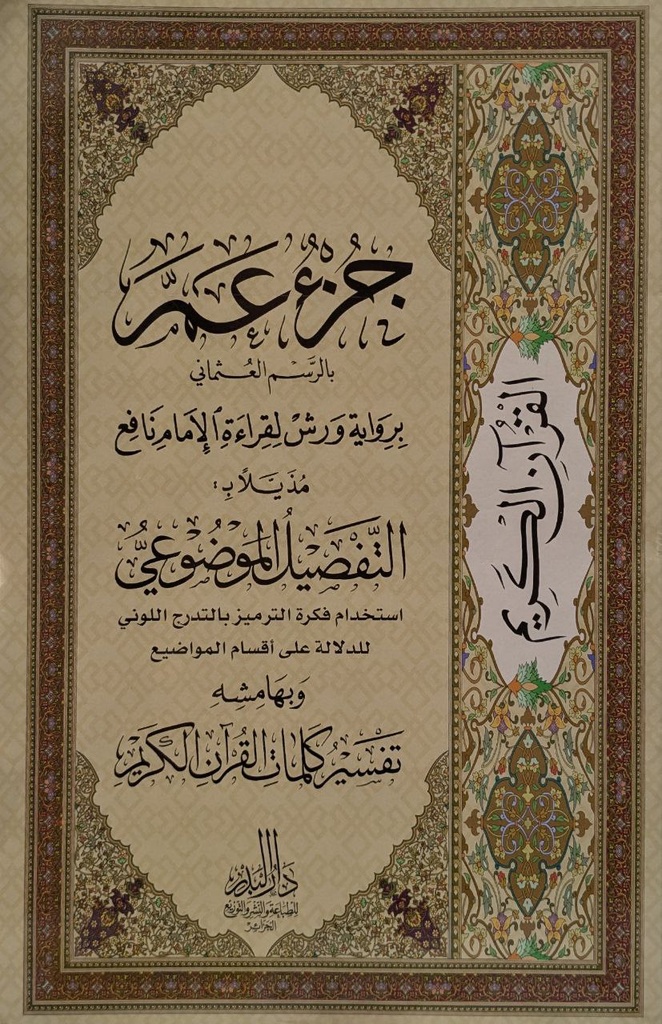 جُزْءُ عَمَّ
بالرَّسْم العُثماني
بِرِوَاية وَرش لِقِراءَةِ الإِمَامِ نَافِع
مُذَيَّلاً بِ:
التَّفْصِيلُ المَوْضُوعِيُّ
استخدام فكرة الترميز بالتدرج اللوني
للدلالة على أقسام المواضيع
وَبِهَامِشِهِ
تَفْسِيرُ كَلِمَاتِ القُرْآنِ الكَرِيْمِ
للطباعة والنشر والتوزيع
الجزائر
القُرْآنُ الكَرِيمُ